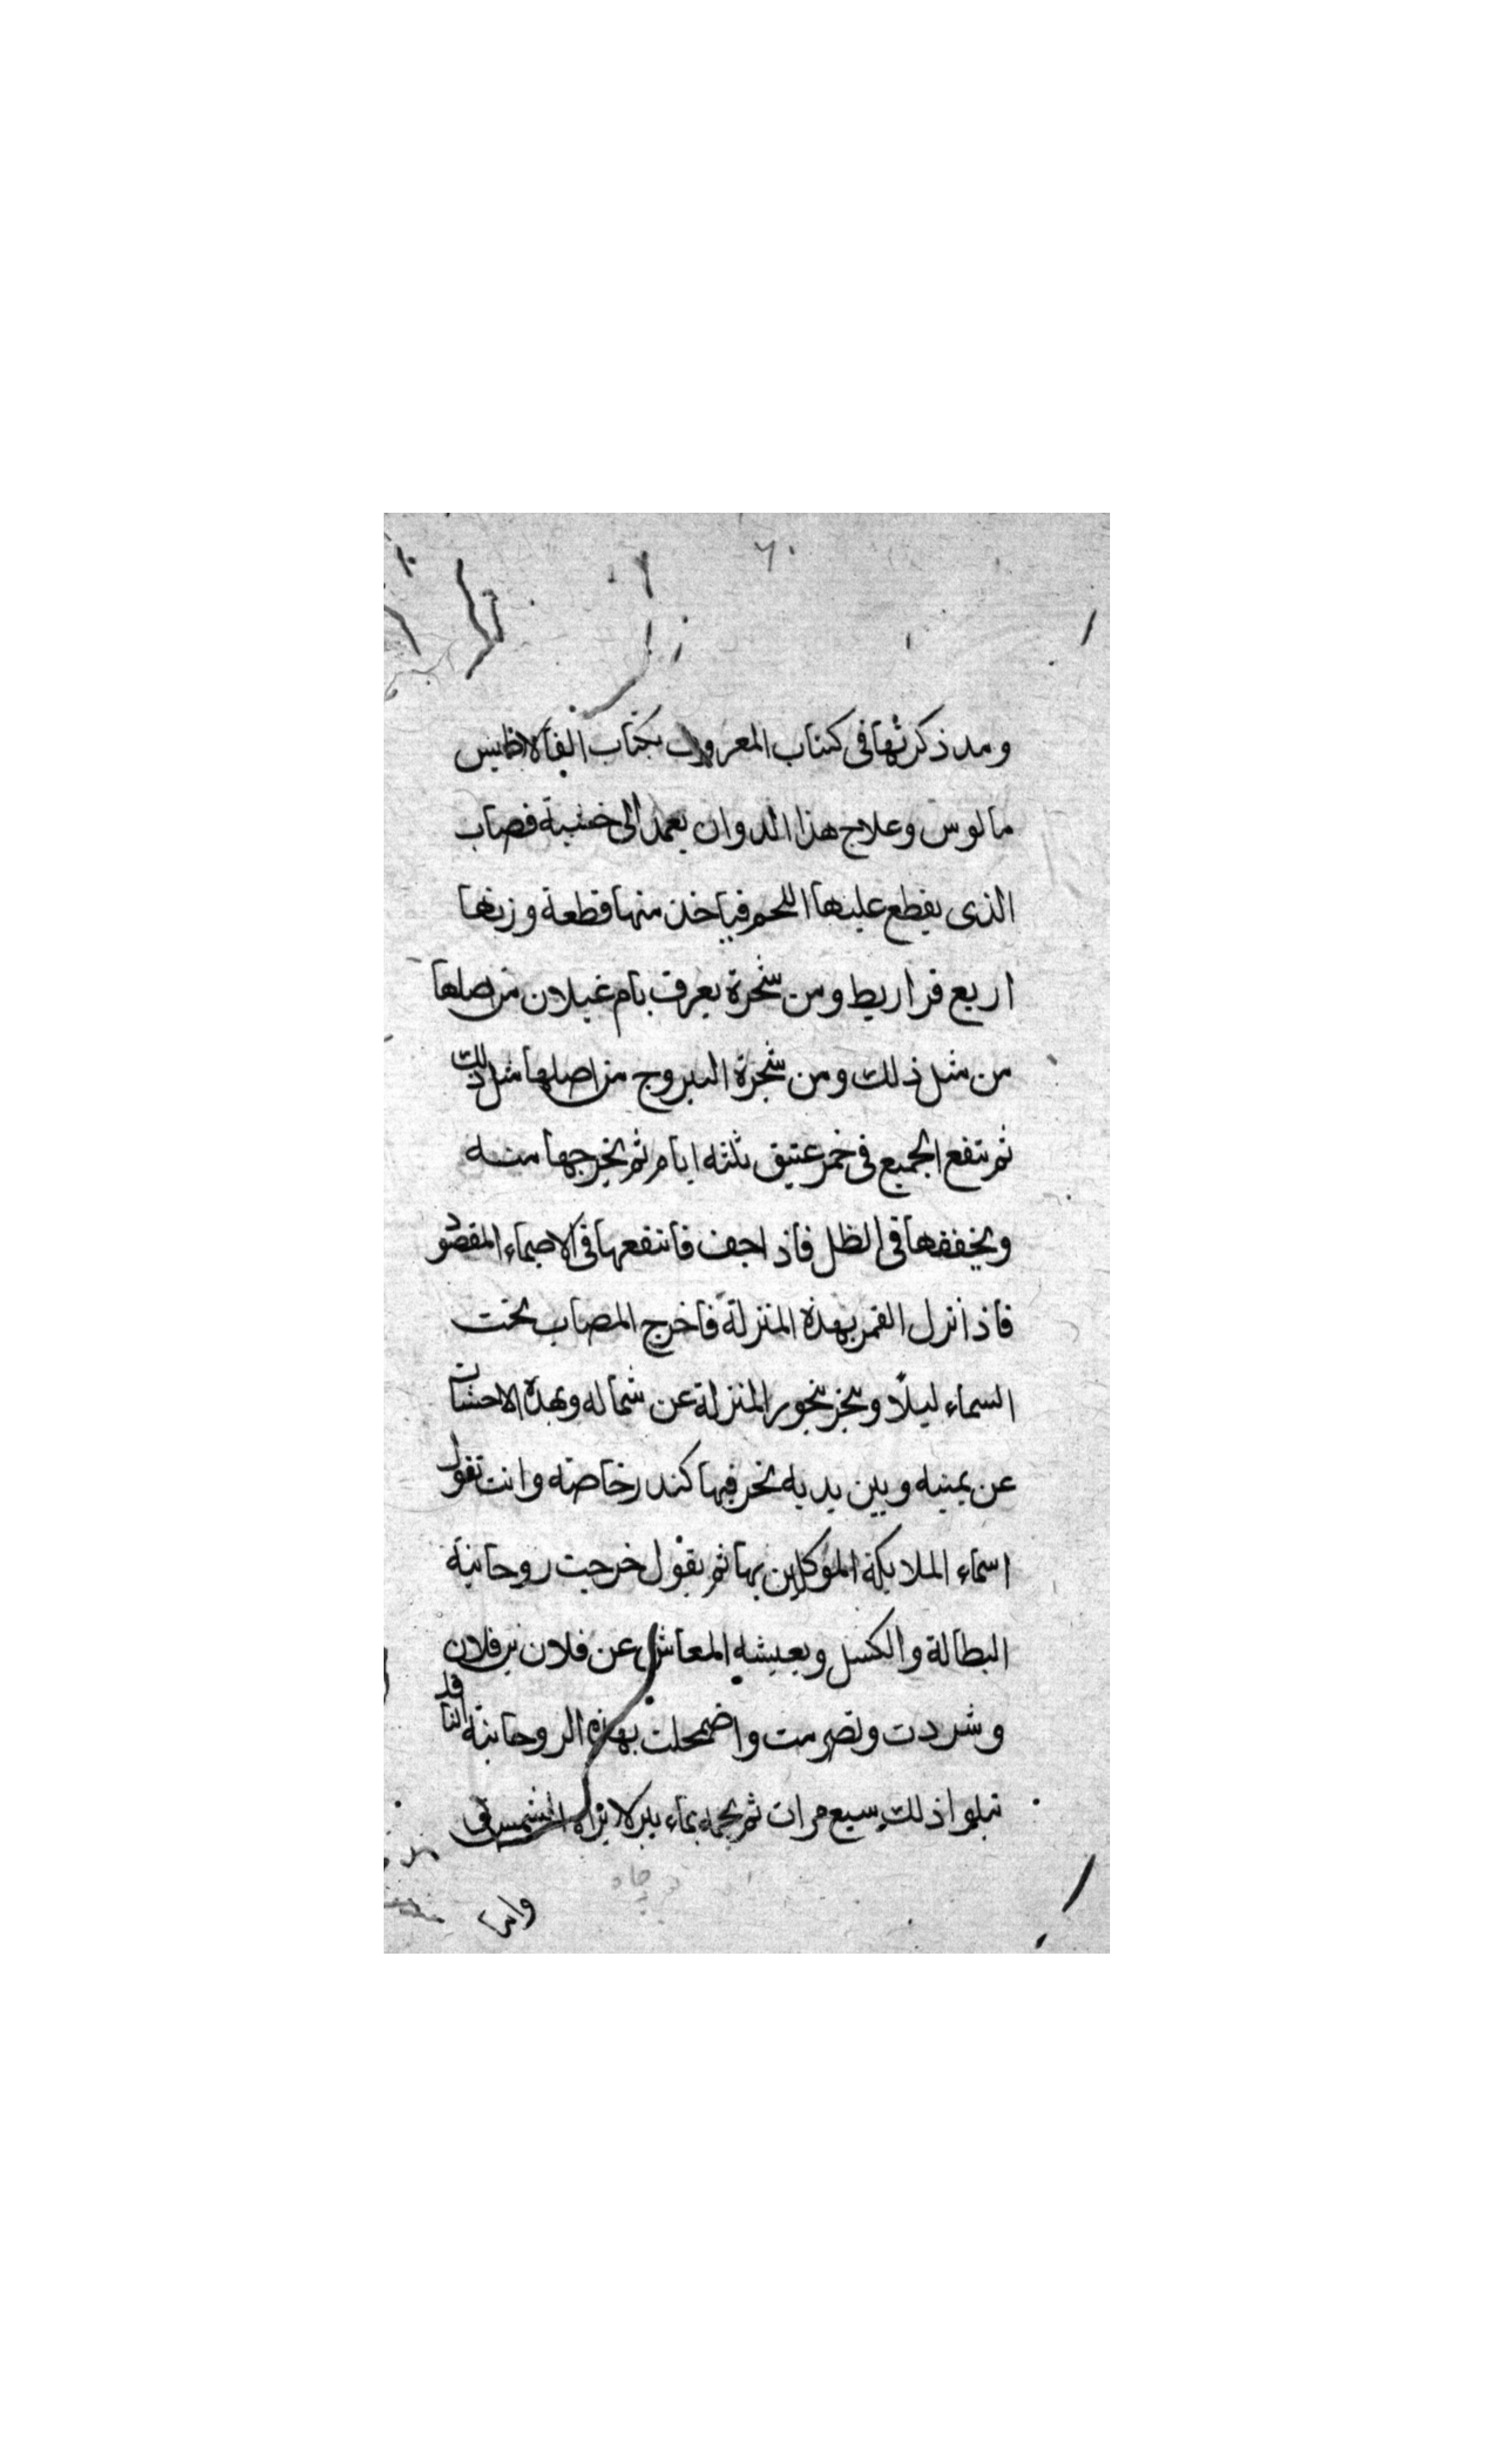 ٦٠
ومد ذكرتها فى كتاب المعروف بكتاب الفالاظيس
مالوس وعلاج هذا الدوان يعمد الى خشبة قصاب
الذى يقطع عليها اللحم فياخذ منها قطعة وزنها
اربع قراريط ومن شجرة يعرف بام غيلان من اصلها
من مثل ذلك ومن شجرة اليبروج من اصلها مثل ذلك
ثم تنقع الجميع فى خمر عتيق ثلثه ايام ثم يخرجها منه
ويخففها فى الظل فاذا جف فانقعها فى الاصماء المقصود
فاذا نزل القمر بهذه المنزلة فاخرج المصاب تحت
السماء ليلاً وبخر بخور المنزلة عن شماله وبهذه الاخشاب
عن يمينه وبين يديه بخر فيها كندر خاصه وانت تقول
اسماء الملايكة الموكلين بها ثم يقول خرجت روحانية
البطالة والكسل وبعيشه المعاش عن فلان بن فلان
وشردت وتصرمت واضمحلت بهذه الروحانية
تبلوا ذلك سبع مرات ثم يحمه بماء بير لا تراه الشمس فى